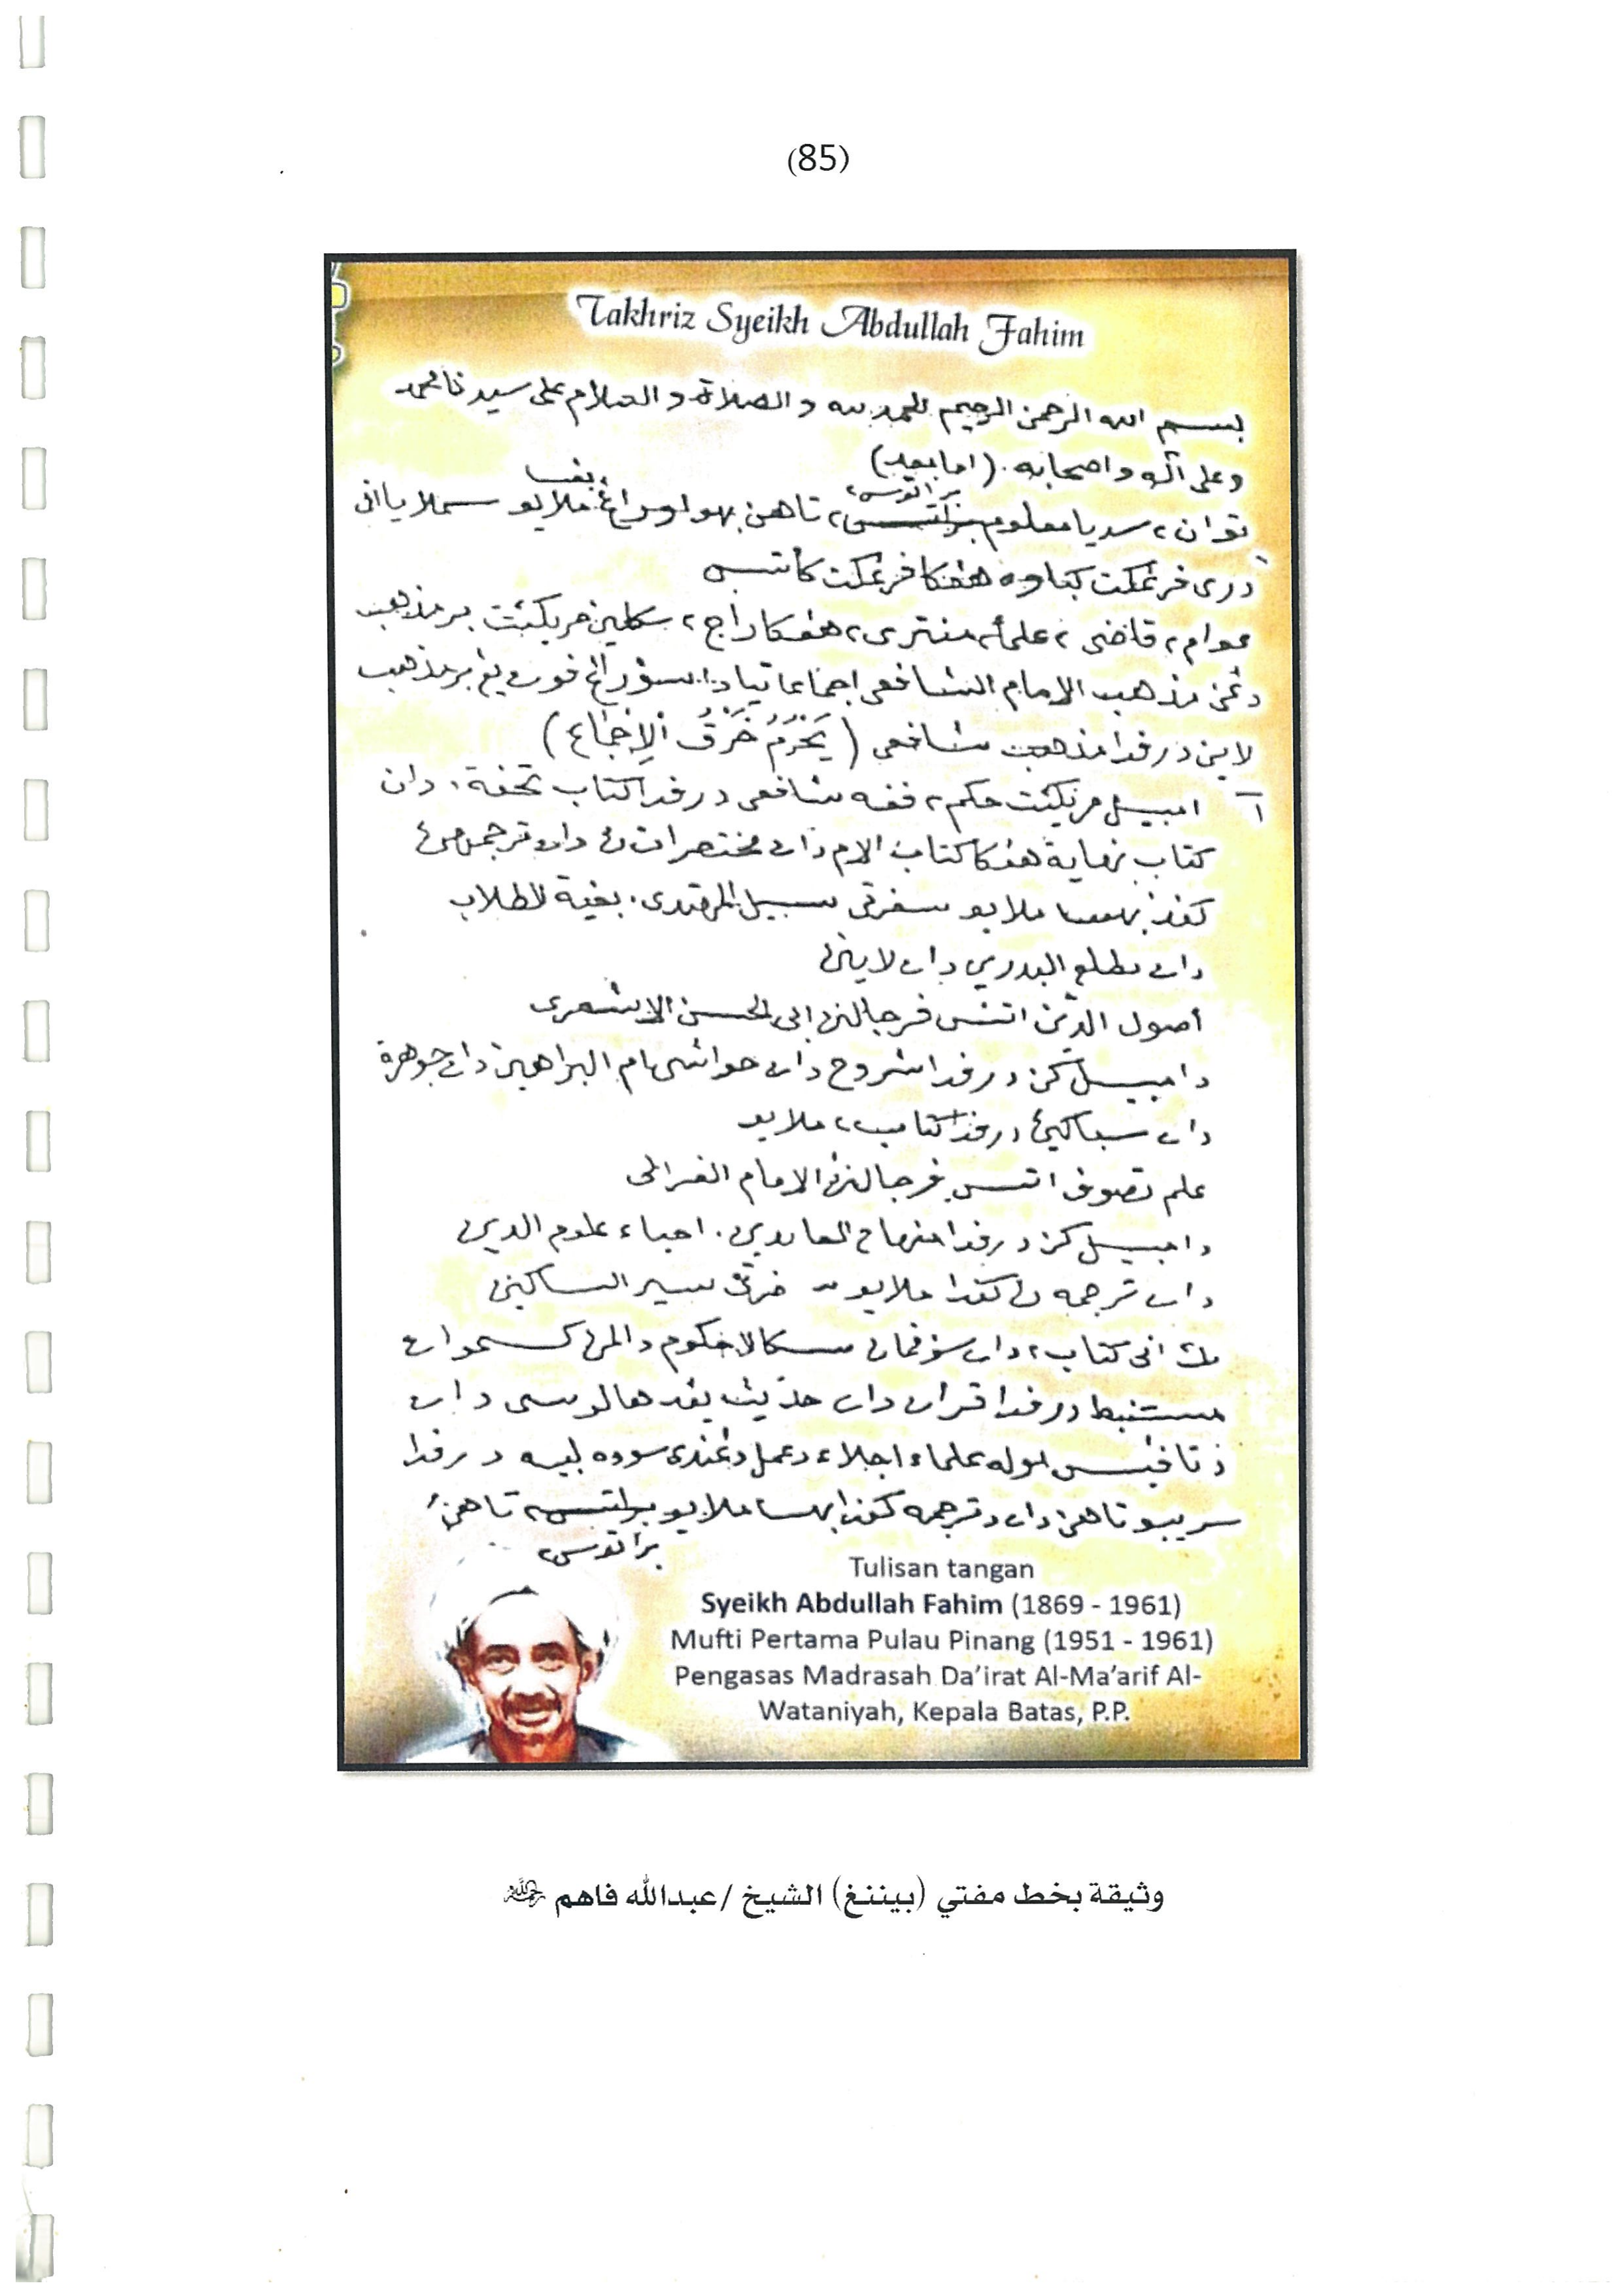 (85)
Takhriz Syeikh Abdullah Fahim
بسم الله الرحمن الرحيم الحمد لله والصلاة والسلام على سيدنا محمد
وعلى آله واصحابه. (اما بعد)
براتوس٢
توان٢ سديا معلوم براتس٢ تاهن بهوا اورڠ٢ ملايو سملايا اني
بڠسا
دري فرڠكت كباوه هڠݢا فرڠكت كأتس
عوام٢ قاضى٢ علماء٢ منتري٢ هڠݢا راج٢ سكلين مريكئت برمذهب
دڠن مذهب الامام الشافعى اجماعا تيادا سؤرڠ فون يڠ برمذهب
لاين درفدا مذهب شافعى (يَحْرُمُ خَرْقُ الْإِجْمَاع)
١ امبيل مريكئت حكم٢ فقه شافعى درفدا كتاب تحفة، دان
كتاب نهاية هڠݢا كتاب الام دان مختصراتڽ دان ترجمهڽ
كفد بهسا ملايو سفرتي سبيل المهتدى، بغية الطلاب
دان مطلع البدرين دان لاينڽ
أصول الدين اتس فرجالنن ابى الحسن الاشعرى
دامبيل كن درفدا شروح دان حواشى ام البراهين دان جوهرة
دان سباݢيڽ درفدا كتاب٢ ملايو
علم تصوف اتس فرجالنن الامام الغزالى
دامبيل كن درفدا منهاج العابدين، احياء علوم الدين
دان ترجمهڽ كفدا ملايو سفرتي سير السالكين
مك اني كتاب٢ دان سوڠݢهن سݢالا حكوم دالمڽ كسموان
مستنبط درفدا قران دان حديث يڠ هالوسى دان
دتافيس اوله علماء اجلاء دعمل دڠندى سوده لبيه درفدا
سريبو تاهن دان دترجمه كفدا بهسا ملايو براتس٢ تاهن
براتوس٢
Tulisan tangan
Syeikh Abdullah Fahim (1869 - 1961)
Mufti Pertama Pulau Pinang (1951 - 1961)
Pengasas Madrasah Da’irat Al-Ma’arif Al-
Wataniyah, Kepala Batas, P.P.
وثيقة بخط مفتي (بيننغ) الشيخ /عبدالله فاهم رحمه الله